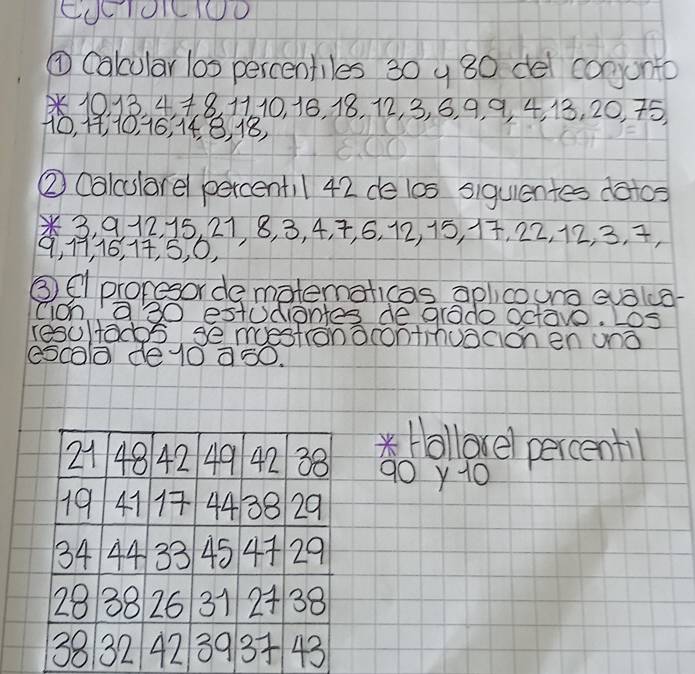 Ejercicios
① Calcular los percentiles 30 y 80 del conjunto
* 10, 13, 4, 7, 8, 11, 10, 16, 18, 12, 3, 6, 9, 9, 4, 13, 20, 75,
10, 17, 10, 16, 14, 8, 18,
② Calcular el percentil 42 de los siguientes datos
* 3, 9, 12, 15, 21, 8, 3, 4, 7, 6, 12, 15, 17, 22, 12, 3, 7,
9, 11, 16, 17, 5, 0,
③ El profesor de matematicas aplico una evalua-
cion a 30 estudiantes de grado octavo. Los
resultados se muestran a continuacion en una
escala de 10 a 50.
21 48 42 49 42 38
* Hallar el percentil
90 y 10
19 41 17 44 38 29
34 44 33 45 47 29
28 38 26 31 27 38
38 32 42 39 37 43